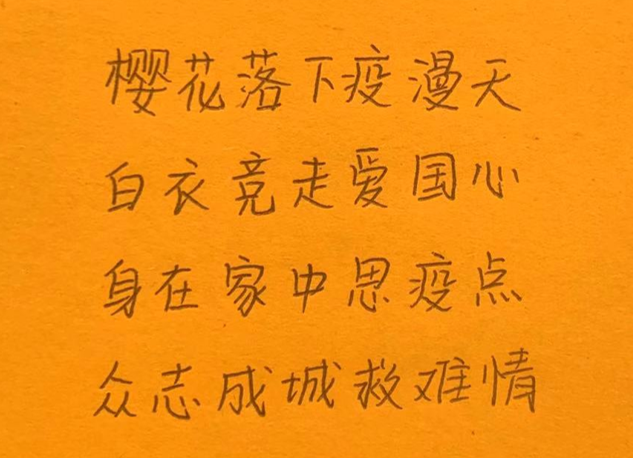 樱花落下疫漫天
白衣竞走爱国心
身在家中思疫点
众志成城救难情